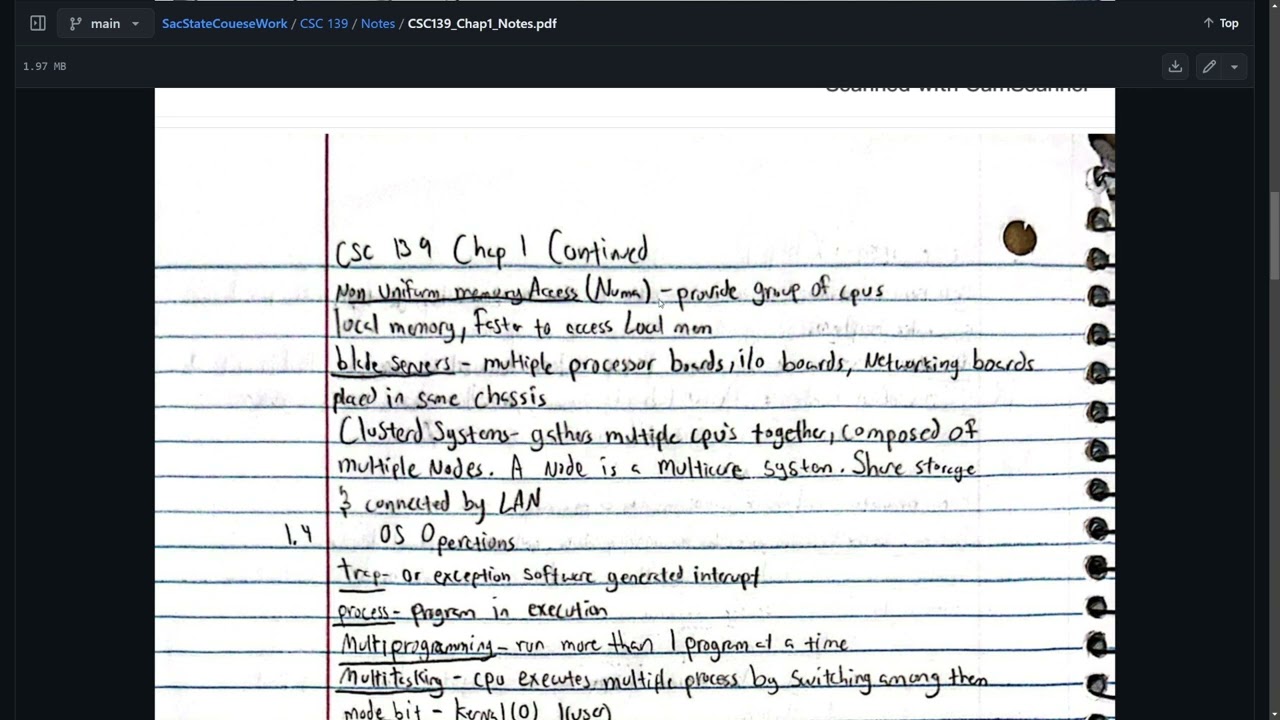 main
SacStateCoueseWork / CSC 139 / Notes / CSC139_Chap1_Notes.pdf
Top
1.97 MB
Scanned with CamScanner
CSC 139 Chap 1 Continued
Non Uniform memory Access (Numa) - provide group of cpus
local memory, faster to access Local mem
blade servers - multiple processor boards, i/o boards, Networking boards
placed in same chassis
Clusterd Systems - gathers multiple cpu's together, composed of
multiple Nodes. A Node is a multicore system. Share storage
& connected by LAN
1.4 OS Operations
trap - or exception software generated interupt
process - Program in execution
Multiprogramming - run more than 1 program at a time
Multitasking - cpu executes multiple process by switching among them
mode bit - kernal (0) 1(user)